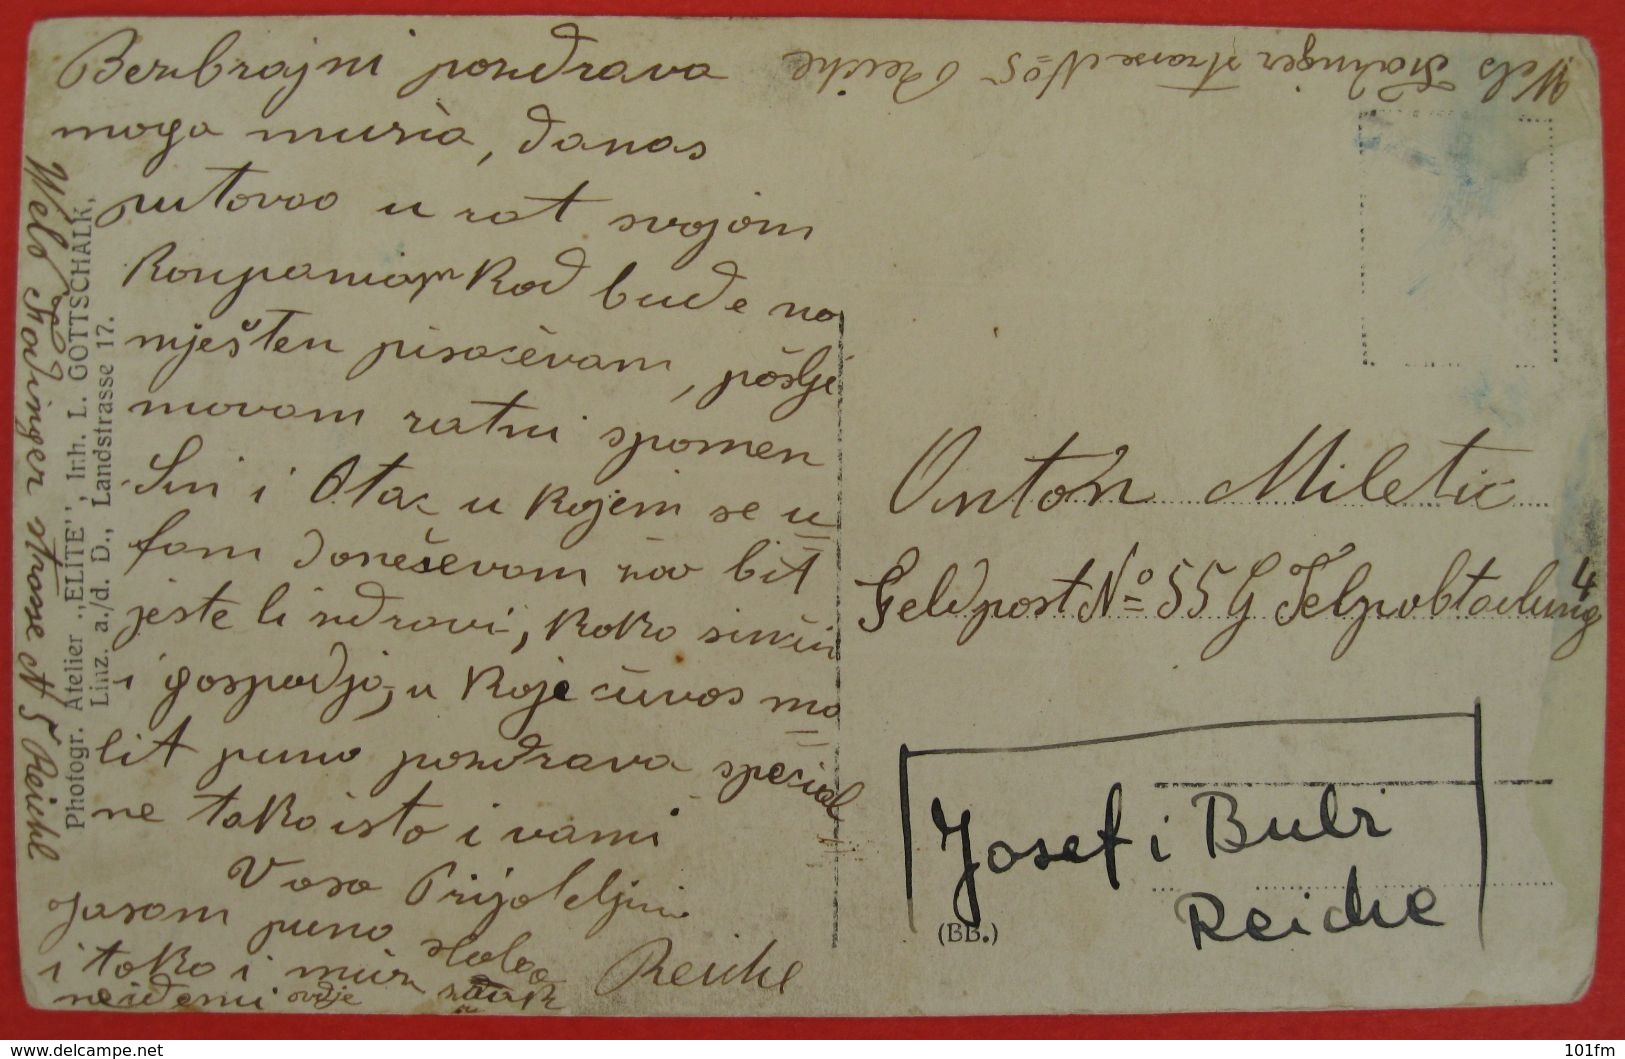 Berzbrajni pozdrava
moga muža, danas
putovao u rat svojom
Kompaniom Kad bude na
mješten pisaćevam, pošlje
movam ratni spomen
Sin i Otac u Kojem se u
fam doneševam žao bit
jeste li zdravi, Kako sinčić
i gospodja, u Koje čuvos mo
lit puno pozdrava special
ne tako isto i vami
Vasa Prijateljica
Jasam puno slaba
i tako i mir Reiche
neidemi ovdje
Wels Stadinger strasse N 5 Reichl
Photogr. Atelier „ELITE”, Inh. L. GOTTSCHALK,
Linz. a./d. D., Landstrasse 17.
Wels Stadinger strasse No 5 Reiche
Onton Miletic
Feldpost No 55 G Felpobtailung
4
Josef i Bubi
Reiche
(BB.)
delcampe.net
101fm